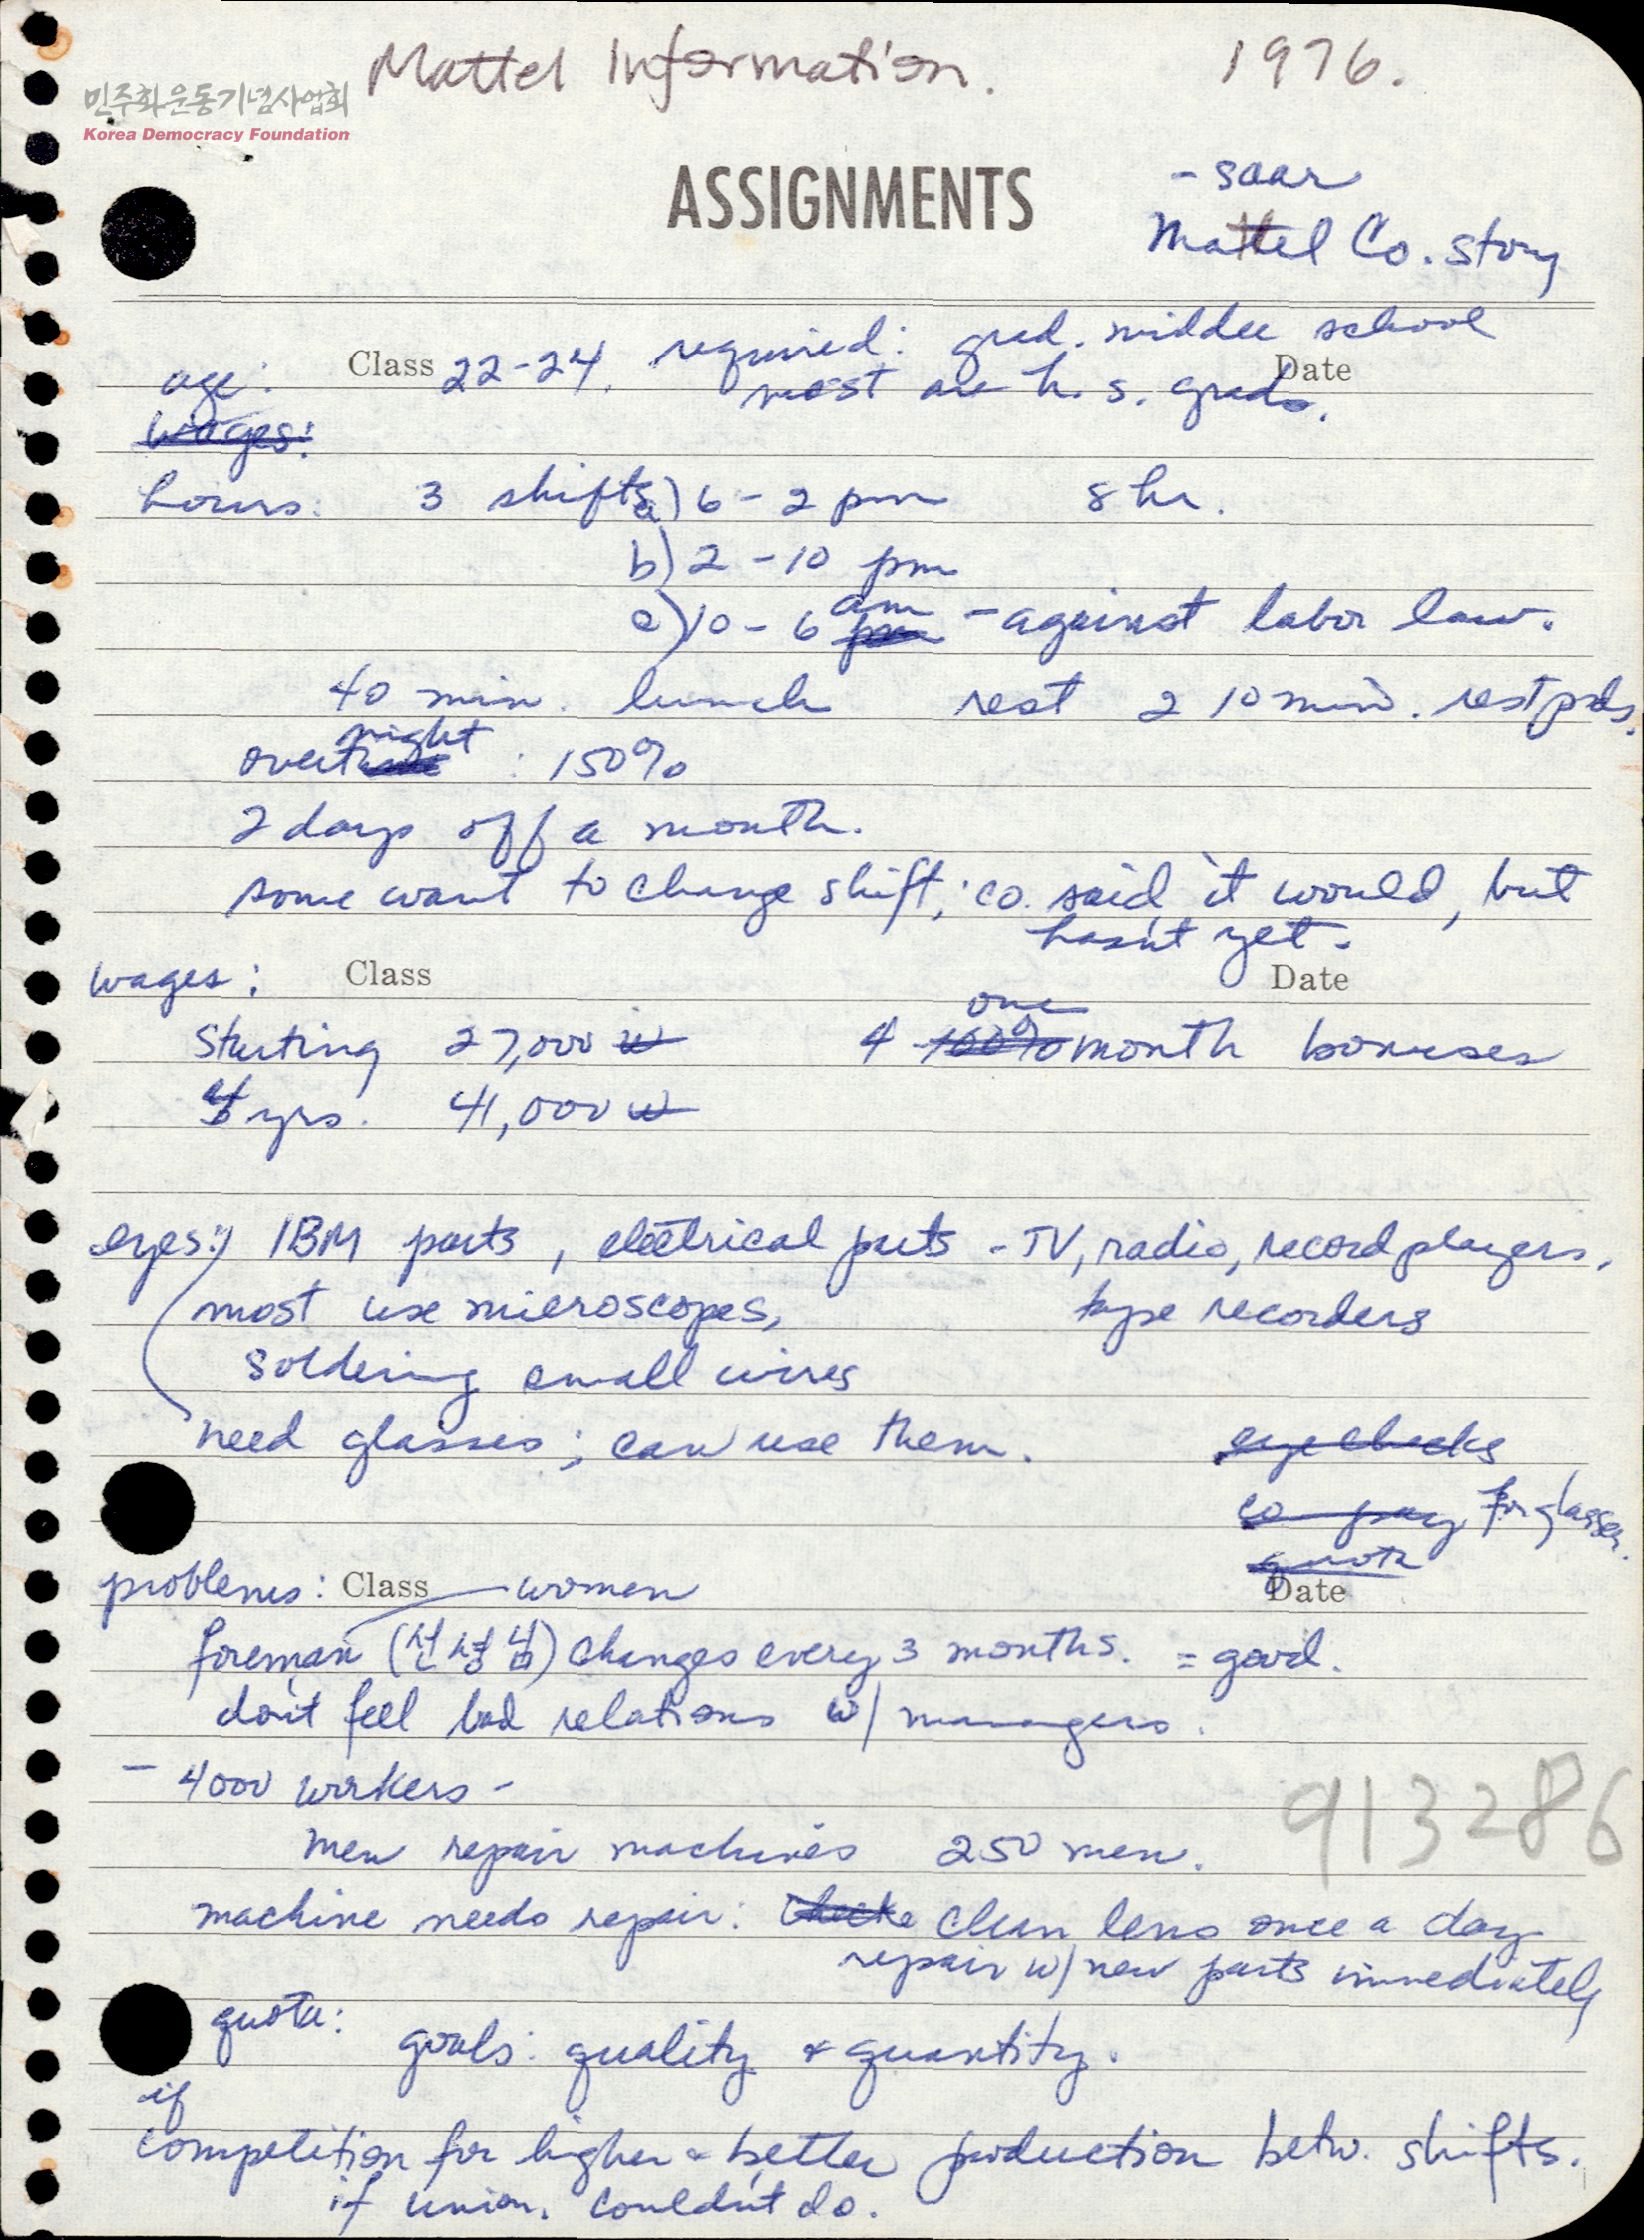 Mattel Information. 1976.
민주화운동기념사업회
Korea Democracy Foundation
ASSIGNMENTS
- soar
Mattel Co. story
age: Class 22-24. required: grad. middle school Date
most are h.s. grads.
wages:
hours: 3 shifts a) 6 - 2 pm 8 hr.
b) 2 - 10 pm
c) 10 - 6 am - against labor law.
40 min. lunch rest 2 10 min. rest pds.
overnight : 150%
2 days off a month.
some want to change shift; co. said it would, but
hasn't yet.
wages: Class Date
Starting 27,000 ₩ 4 one month bonuses
yrs. 41,000 ₩
eyes: IBM parts, electrical parts - TV, radio, record players,
most use microscopes, tape recorders
soldering small wires
need glasses; can use them. eye checks
co pay for glasses.
quota
problems: Class women Date
foreman (선생님) changes every 3 months. = good.
don't feel bad relations w/ managers.
- 4000 workers -
913286
men repair machines 250 men.
machine needs repair: Checks clean lens once a day
repair w/ new parts immediately
quota: goals: quality & quantity.
if
competition for higher & better production betw. shifts.
if union. couldn't do.